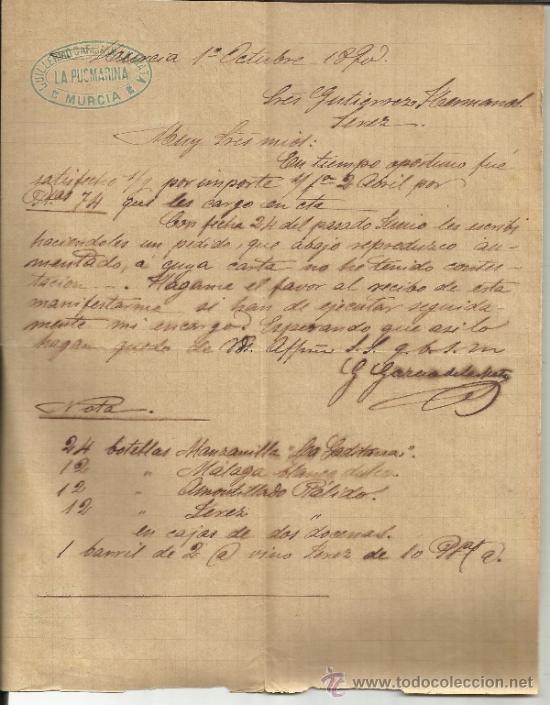 GUILLERMO GARCIA DE LA MATA
LA PUSMARINA
MURCIA
Murcia 1º Octubre 1890.
Sres Gutierrez Hermanos.
Jerez
Muy Sres mios:
En tiempo oportuno fué
satisfecho s/g por importe 2 Abril por
Ptas 74 que les cargo en cta
Con fecha 24 del pasado Junio les escribi
haciendoles un pedido, que abajo reproduzco au-
mentado, a cuya carta no he tenido contes-
tacion. Hagame el favor al recibo de esta
manifestarme si han de ejecutar seguida-
mente mi encargo. Esperando que asi lo
hagan quedo de Vds. Affmo S.S. q.b.s.m
G Garcia de la Mata
Nota.
24 botellas Manzanilla "La Gaditana".
12 " Málaga blanco dulce.
12 " Amontillado Pálido.
12 " Jerez "
en cajas de dos docenas.
1 barril de 2 @ vino Jerez de 10 Ptas @.
todocoleccion
www.todocoleccion.net